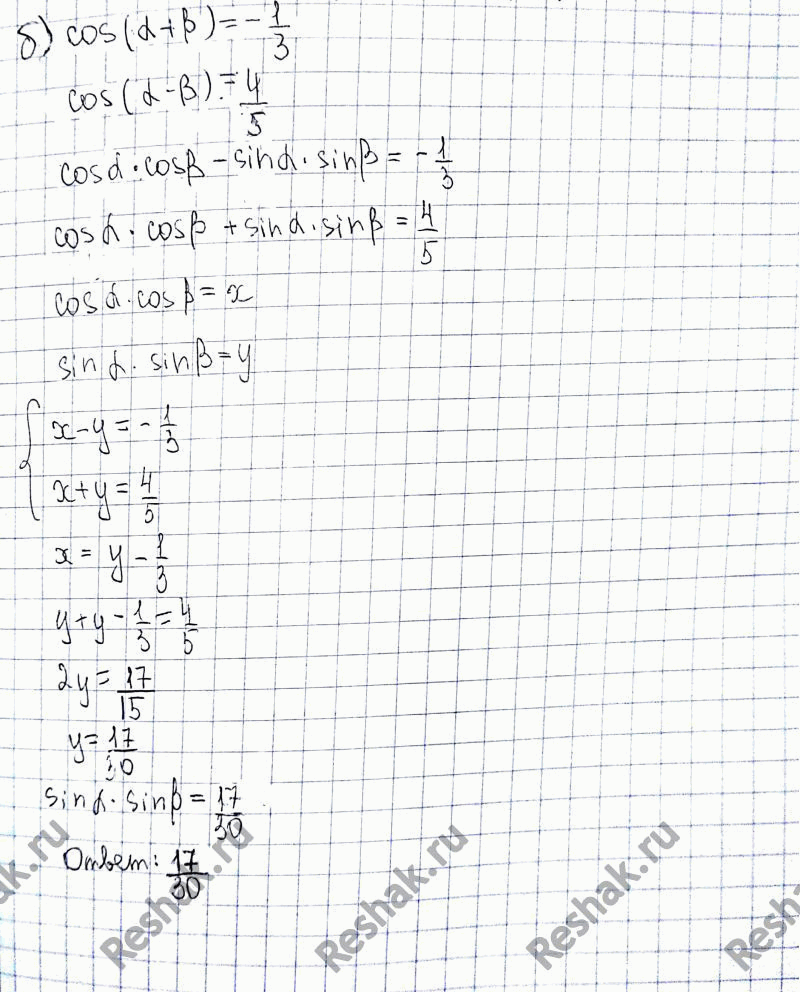 б) cos(α+β)=-1/3
cos(α-β)=4/5
cosα·cosβ-sinα·sinβ=-1/3
cosα·cosβ+sinα·sinβ=4/5
cosα·cosβ=x
sinα·sinβ=y
{ x-y=-1/3
x+y=4/5
x=y-1/3
y+y-1/3=4/5
2y=17/15
y=17/30
sinα·sinβ=17/30
Ответ: 17/30
Reshak.ru
Reshak.ru
Reshak.ru